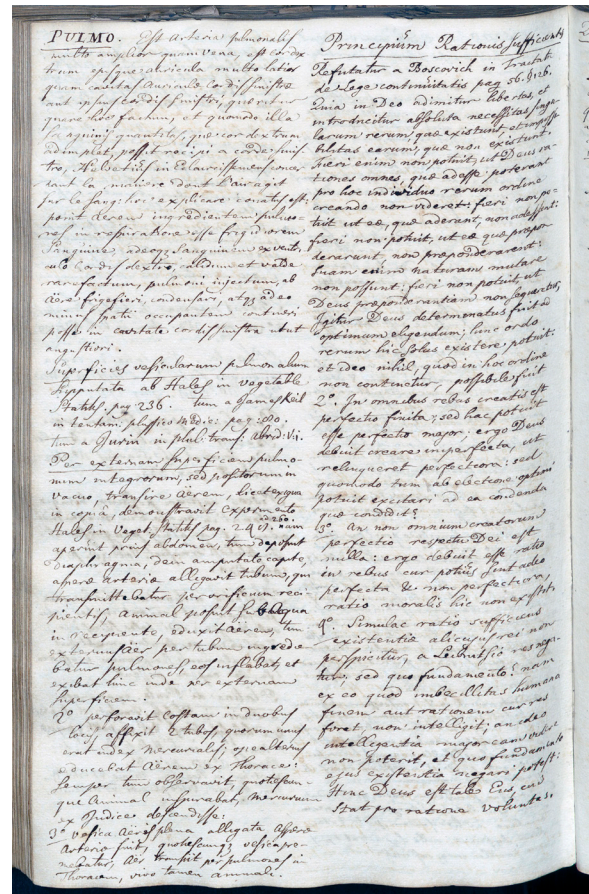 PULMO. Est Arteria pulmonalis
multo amplior quam vena, est cor dex
trum ejusque auricula multo latior
quam cavitas Auriculae cordis sinistrae
aut ipsius cordis sinistri, quaeritur
quare hoc factum, et quomodo illa
sanguinis quantitas, quae cor dextrum
adimplet, possit recipi a corde sinis
tro, Helvetius in Eclaircissement concer
nant la maniere dont l'air agit
sur le sang: hoc explicare conatus est,
ponit Aerem ingredientem pulmo
nes in respiratione esse frigidiorem
sanguine, adeoque sanguinem ex ventri
culo cordis dextro, calidum et valde
rarefactum, pulmoni injectum, ab
Aëre frigefieri, condensari, atque adeo
minus spatii occupantem contineri
posse in cavitate cordis sinistra utut
angustiori.
Superficies vesicularum pulmonalium
supputata ab Hales in vegetable
Staticks. pag 236. tum a James Keil
in tentam. physico Medic: pag: 80.
tum a Jurin in phil: trans. abrid: VI.
Per externam superficiem pulmo
num integrorum, sed positorum in
vacuo, transire Aërem, licet exigua
in copia, demonstravit experimento
Hales in Veget. Statiks pag. 247. ad 260. nam
aperuit prius abdomen, tum deposuit
Diaphragma, dein amputato capite,
asperae arteriae alligavit tubum, qui
transmittebatur per orificium reci
pientis, animal posuit sub aqua
in recipiente, eduxit aërem, tum
externus aër per tubum ingrede
batur pulmones, eos inflabat, et
exibat hinc inde per externam
superficiem.
2° perforavit costam in duobus
locis, affixit 2 tubos, quorum unus
erat index mercurialis, ope alterius
educebat Aërem ex Thorace:
semper tum observavit, quotiescun
que Animal inspirabat, mercurium
ex Indice descendisse:
3° vesica Aëris plena alligata Asperae
Arteriae fuit, quotiescunque vesica pre
mebatur, aër transiit per pulmones in
Thoracem, vivo tamen animali.
Principium Rationis sufficientis
Refutatur a Boscovich in Tractatu
de Lege continuitatis pag 56. § 126.
Quia in Deo adimitur libertas, et
introducitur absoluta necessitas singu
larum rerum quae existunt, et impossi
bilitas earum, quae non existunt.
fieri enim non potuit, ut Deus ra
tiones omnes, quae adesse poterant
pro hoc individuo rerum ordine
creando non videret: fieri non po
tuit ut eae, quae aderant, non adessent:
fieri non potuit, ut eae quae praepon
derarunt, non praeponderarent:
suam enim naturam mutare
non possunt: fieri non potuit, ut
Deus praeponderantiam non sequeretur,
Igitur Deus determinatus fuit ad
optimum eligendum; hinc ordo
rerum hic solus existere potuit.
et ideo nihil, quod in hoc ordine
non continetur, possibile fuit
2°. In omnibus rebus creatis est
perfectio finita; sed hac potuit
esse perfectio major; ergo Deus
debuit creare imperfecta, ut
relinqueret perfectiora: sed
quomodo tum ab electione optimi
potuit excitari ad ea condenda
quae condidit?
3°. An non omnium creatorum
perfectio respectu Dei est
nulla: ergo debuit esse ratio
in rebus cur potius sint adeo
perfecta & non perfectiora,
ratio moralis hic non existit.
4°. Simulac ratio sufficiens
existentiae alicujus rei non
perspicitur, a Leibnitsio res nega
tur, sed quo fundamento? nam
ex eo quod imbecillitas humana
finem aut rationem cur res
foret, non intelligit; an ideo
intelligentia major eam videre
non poterit, et quo fundamento
ejus existentia negari potest:
Hinc Deus est tale Ens, cui
Stat pro ratione voluntas.